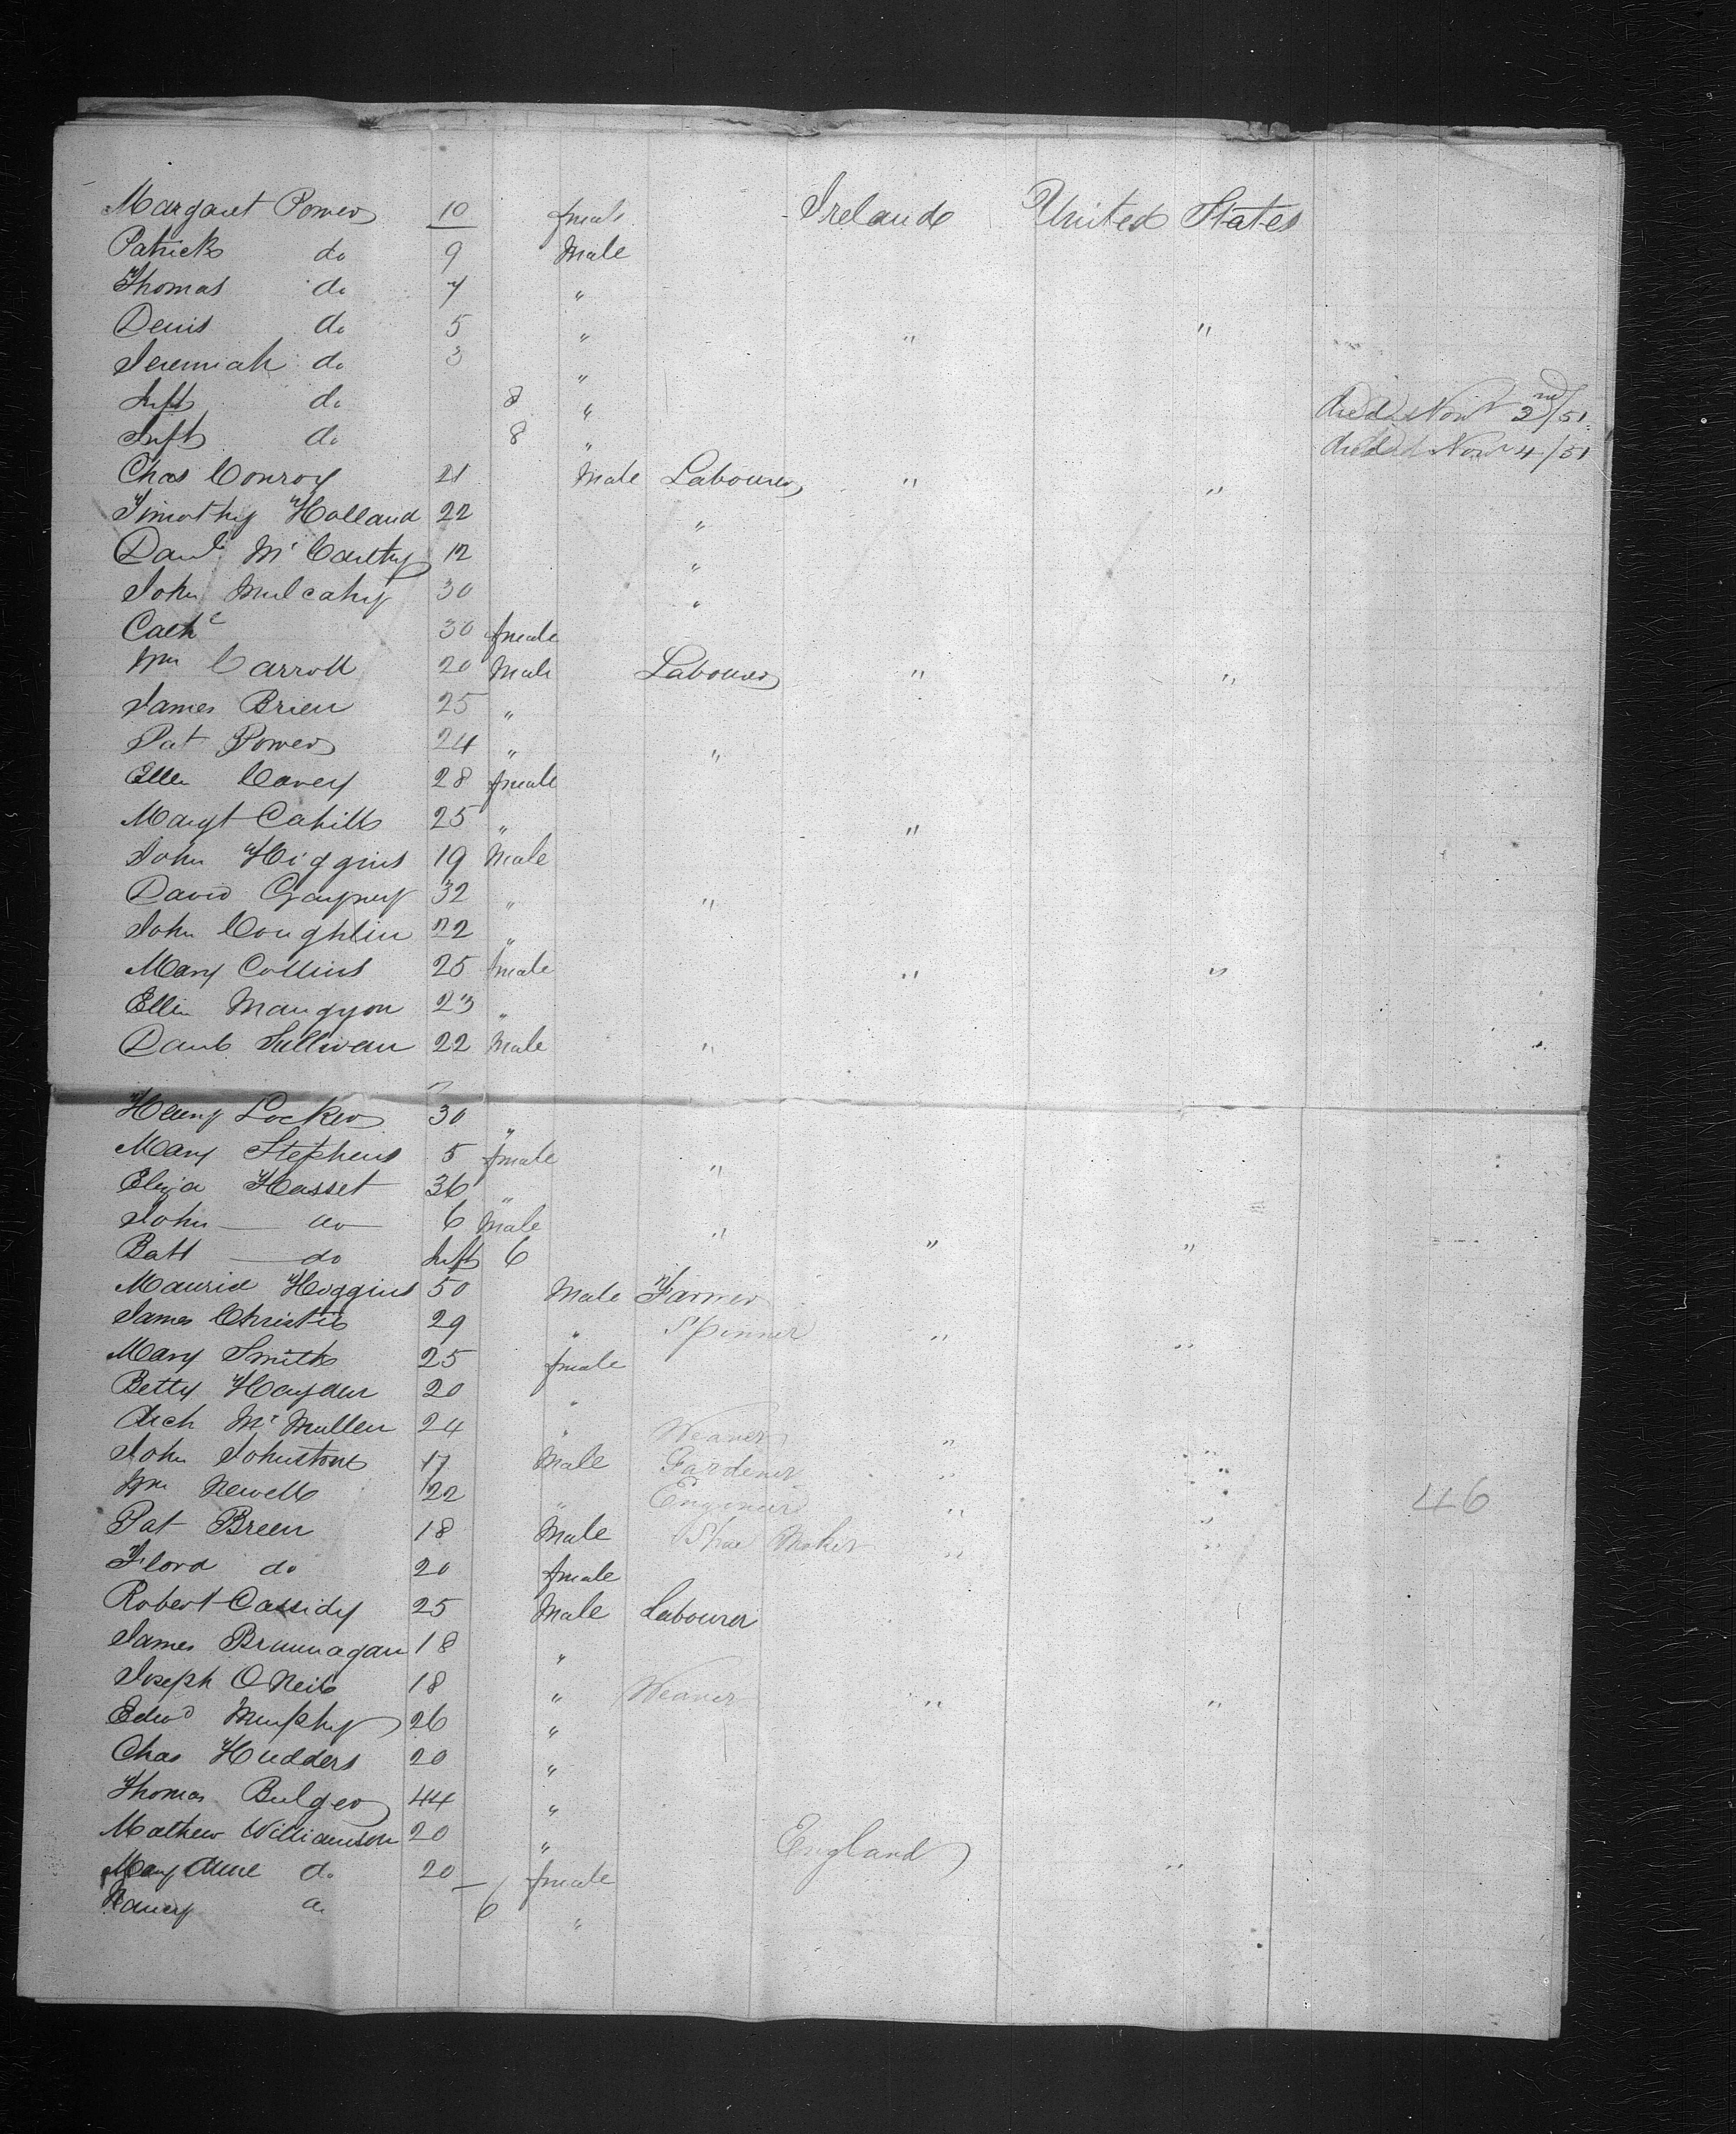 Margaret Power 10 female Ireland United States
Patrick do 9 Male
Thomas do 7 "
Denis do 5 " " "
Jeremiah do 3 "
Inft do 8 " died Novr 2nd/51
Inft do 8 " died Novr 4/51
Chas Conroy 21 Male Labourer " "
Timothy Holland 22 "
Danl McCarthy 12 "
John Mulcahy 30 "
Cathe 30 female
Wm Carroll 20 Male Labourer " "
James Brien 25 "
Pat Power 24 " "
Ellen 28 female
Margt Cahill 25 " "
John Higgins 19 Male
David 32 " "
John Coughlin 22 "
Mary Collins 25 female " "
Ellen 23 "
Danl Sullivan 22 Male "
Henry Locker 30 "
Mary Stephens 5 female "
Eliza Hasset 36 "
John — do — 6 Male "
Batt — do Inft 6 " "
Maurice Higgins 50 Male Farmer
James Christie 29 " Spinner " "
Mary Smith 25 female
Betty Hayden 20 "
Arch McMullen 24 " Weaver "
John Johnstone 17 Male Gardener " "
Wm Newell 22 " Engineer " " 46
Pat Breen 18 Male Shoe Maker " "
Flora do 20 female
Robert Cassidy 25 Male Labourer
James Brunnagan 18 "
Joseph O Neil 18 " Weaver " "
Edwd Murphy 26 "
Chas Hudders 20 "
Thomas Bulger 44 "
Mathew Williamson 20 " England "
Mary Anne do 20 female
Nancy do 6 "